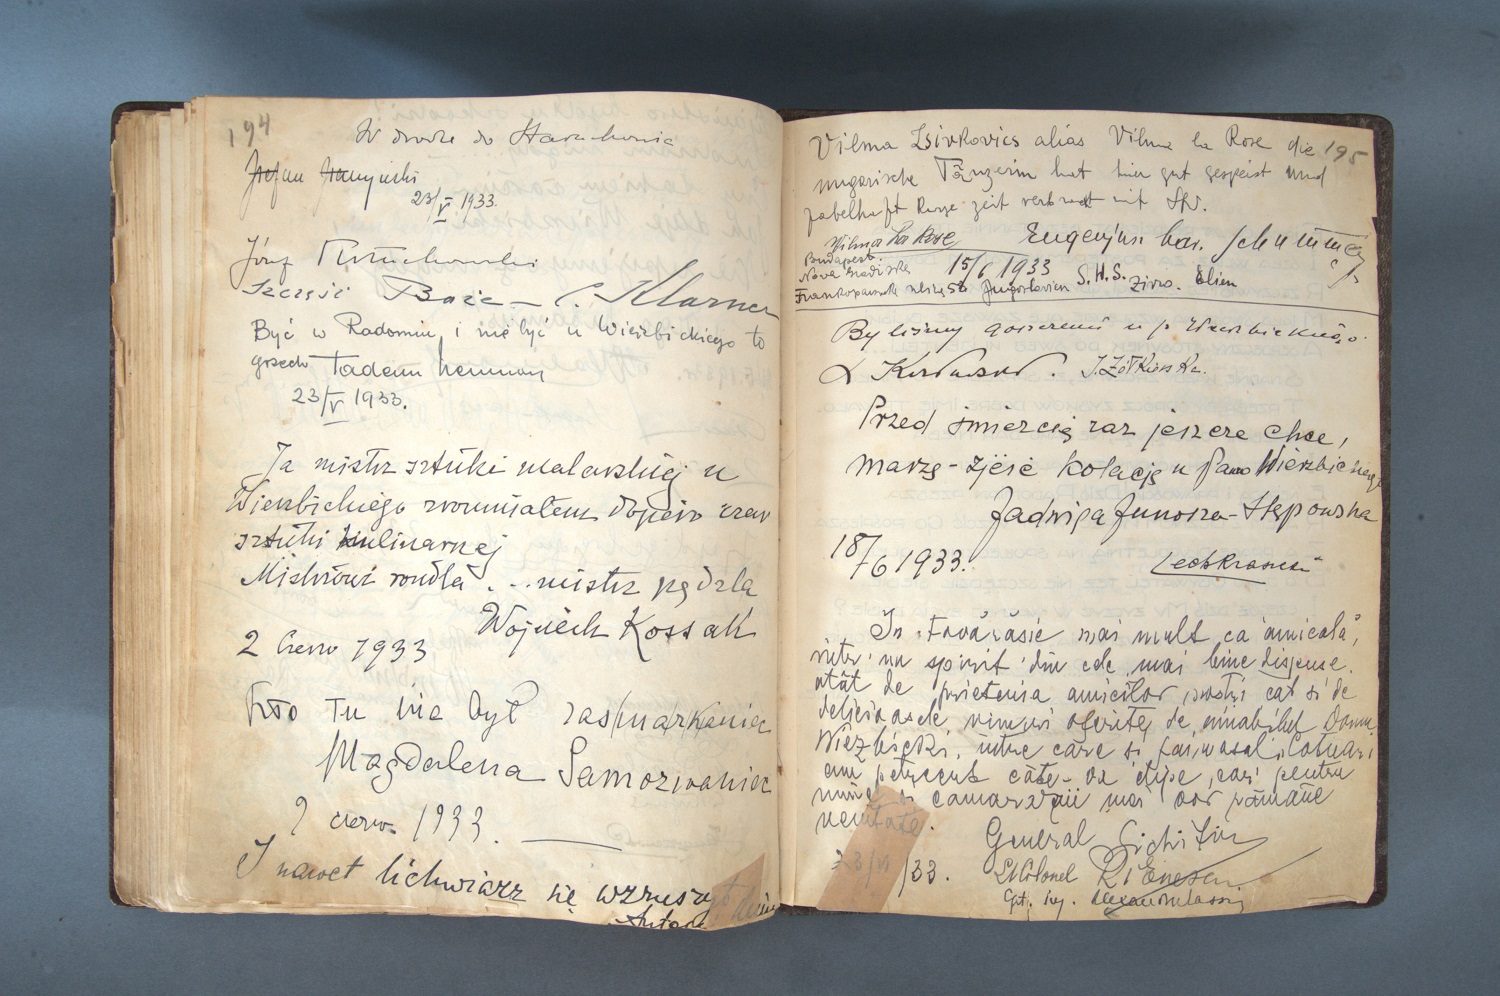 194
W drodze do Starachowic
23/V 1933.
Józef
Szczęść Boże — C. Klarner
Być w Radomiu i nie być u Wierzbickiego to
grzech Tadeusz
23/V 1933.
Ja mistrz sztuki malarskiej u
Wierzbickiego zrozumiałem dopiero czar
sztuki kulinarnej
Mistrzowi rondla ... mistrz pędzla
Wojciech Kossak
2 Czerw 1933
Kto tu nie był zasmarkaniec
Magdalena Samozwaniec
2 czerw. 1933.
I nawet lichwiarz się wzruszył
195
Vilma Zsivkovics alias Vilma la Rose die
ungarische Tänzerin hat hier gut gespeist und
fabelhaft kurze zeit verbracht mit
Vilma La Rose Eugenjusz bar.
Budapest.
Nova Gradiška 15/6 1933
Frankopanska 58 Jugoslavien S.H.S.
Byliśmy goszczeni u p. Wierzbickiego.
J. Żółkiewska.
Przed śmiercią raz jeszcze chcę,
marzę - zjeść kolację u Pana Wierzbickiego
Jadwiga Junosza-Stępowska
18/6 1933.
In tovărăsie mai mult ca "amicala",
intr'un spirit din cele mai bine dispuse.
atât de prietenia amicilor nostri cat si de
delicioasele vinuri oferite de amabilul Domn
Wiezbicki, intre care si
am petrecut câte-va clipe, cari pentru
mine si camarazii mei vor rămâne
neuitate.
General
23/VI/33. Lt Colonel